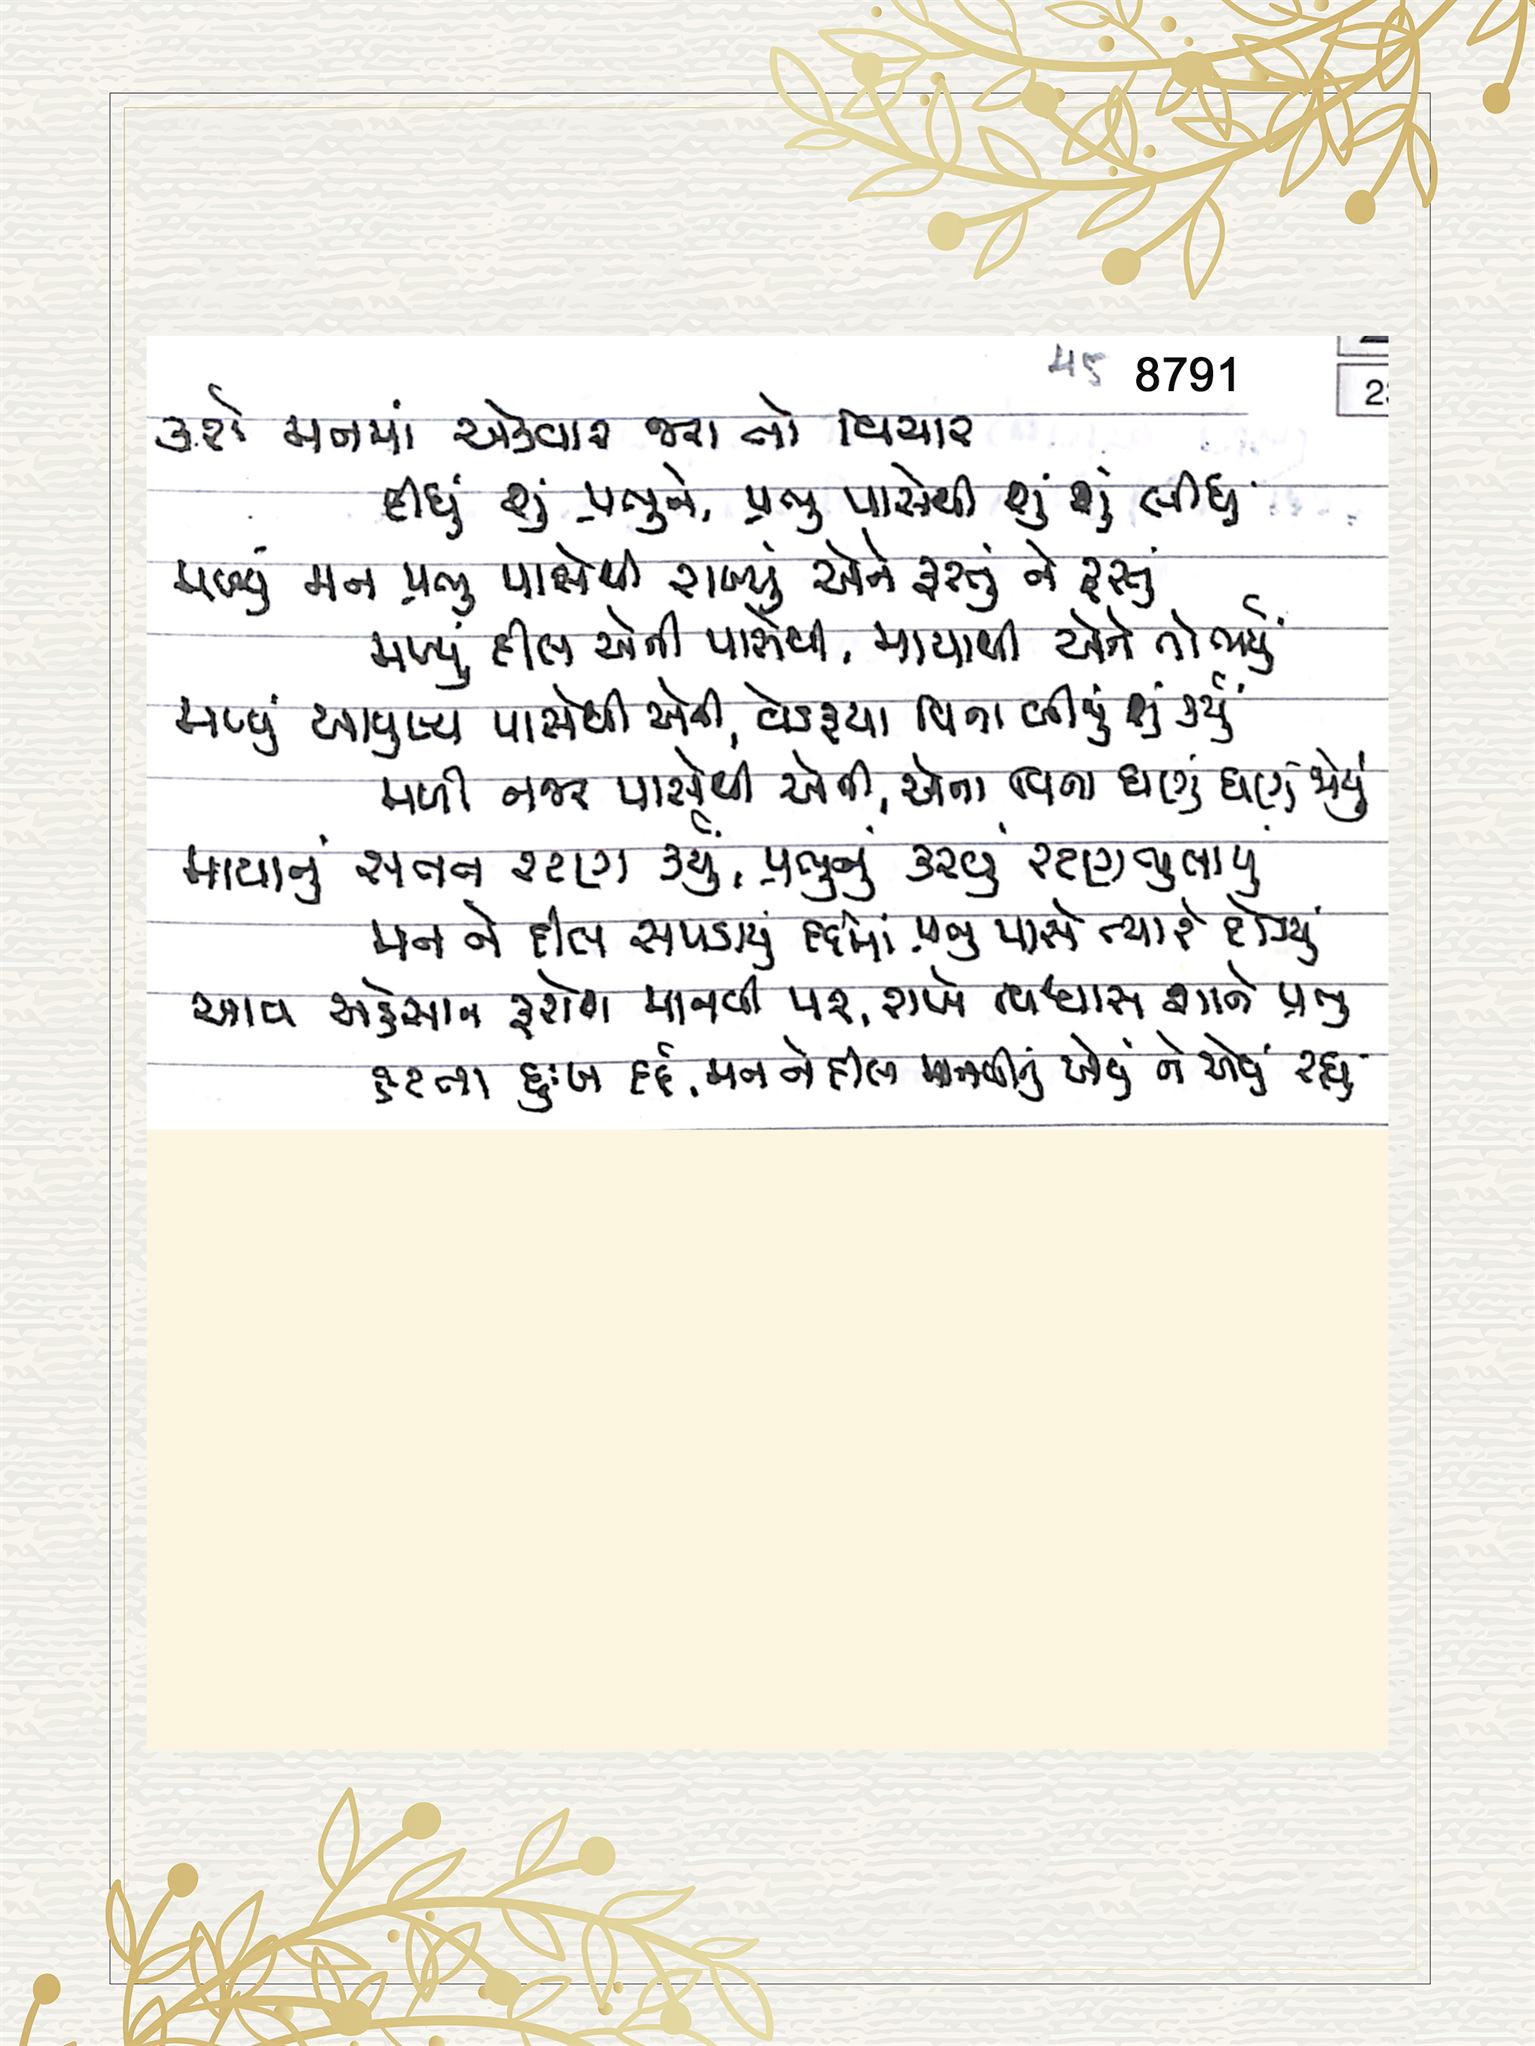 ૫૬ 8791
2
કરો મનમાં એકવાર જરા તો વિચાર
દીધું શું પ્રભુને, પ્રભુ પાસેથી શું શું લીધું
મળ્યું મન પ્રભુ પાસેથી રાખ્યું એને ફરતું ને ફરતું
મળ્યું દીલ એની પાસેથી, માયાથી એને તો ભર્યું
મળ્યું આયુષ્ય પાસેથી એની, વેડફયા વિના બીજું શું કર્યું
મળી નજર પાસેથી એની, એના વિના ઘણું ઘણું જોયું
માયાનું સતત રટણ કર્યું, પ્રભુનું કરવું રટણ ભુલાયું
મન ને દીલ સપડાયું દર્દમાં પ્રભુ પાસે ત્યારે દોડયું
આવા અહેસાન ફરામોશ માનવી પર, રાખે વિશ્વાસ શાને પ્રભુ
હટતા દુઃખ દર્દ, મન ને દીલ માનવીનું એવું ને એવું રહ્યું